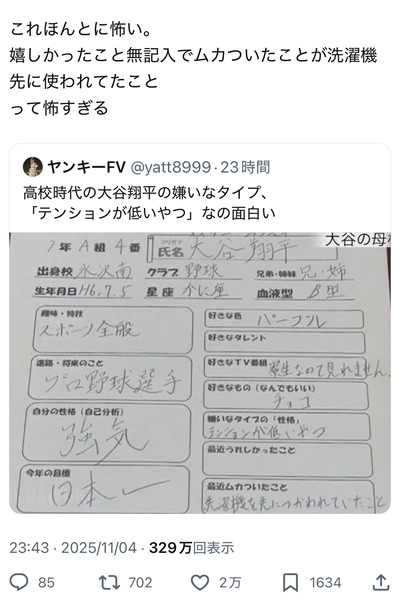 これほんとに怖い。
嬉しかったこと無記入でムカついたことが洗濯機
先に使われてたこと
って怖すぎる
ヤンキーFV @yatt8999・23時間
高校時代の大谷翔平の嫌いなタイプ、
「テンションが低いやつ」なの面白い
大谷の母校
1年 A組 4番 フリガナ 氏名 大谷 翔平
出身校 水沢南 クラブ 野球 兄弟・姉妹 兄・姉
生年月日 H6.7.5 星座 かに座 血液型 B型
趣味・特技
スポーツ全般
進路・将来のこと
プロ野球選手
自分の性格(自己分析)
強気
今年の目標
日本一
好きな色 パープル
好きなタレント
好きなTV番組 寮生なので見れません。
好きなもの(なんでもいい)
チョコ
嫌いなタイプの「性格」
テンションが低いやつ
最近うれしかったこと
最近ムカついたこと
洗濯機を先につかわれていたこと
23:43・2025/11/04・329万回表示
85 702 2万 1634